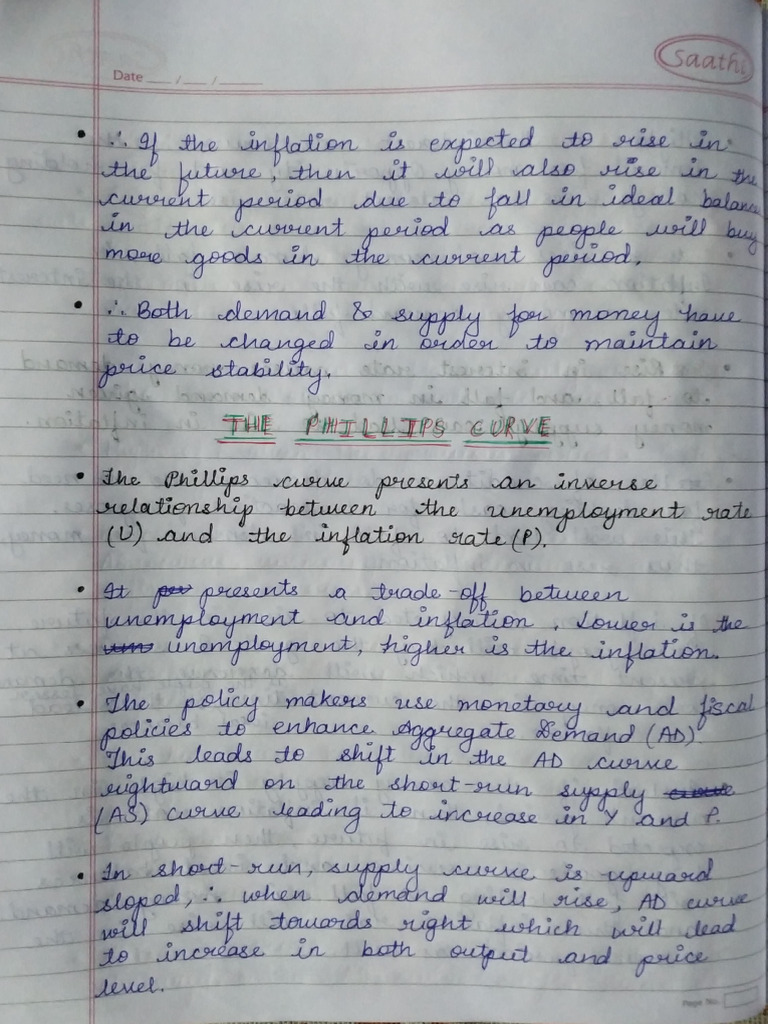 Saathi
Date __/__/____
• ∴ If the inflation is expected to rise in
the future, then it will also rise in the
current period due to fall in ideal balance
in the current period as people will buy
more goods in the current period.
• ∴ Both demand & supply for money have
to be changed in order to maintain
price stability.
THE PHILLIPS CURVE
• The Phillips curve presents an inverse
relationship between the unemployment rate
(U) and the inflation rate (P).
• It presents a trade-off between
unemployment and inflation. Lower is the
unemployment, higher is the inflation.
• The policy makers use monetary and fiscal
policies to enhance Aggregate Demand (AD)
This leads to shift in the AD curve
rightward on the short-run supply curve
(AS) curve leading to increase in Y and P.
• In short-run, supply curve is upward
sloped, ∴ when demand will rise, AD curve
will shift towards right which will lead
to increase in both output and price
level.
Page No.